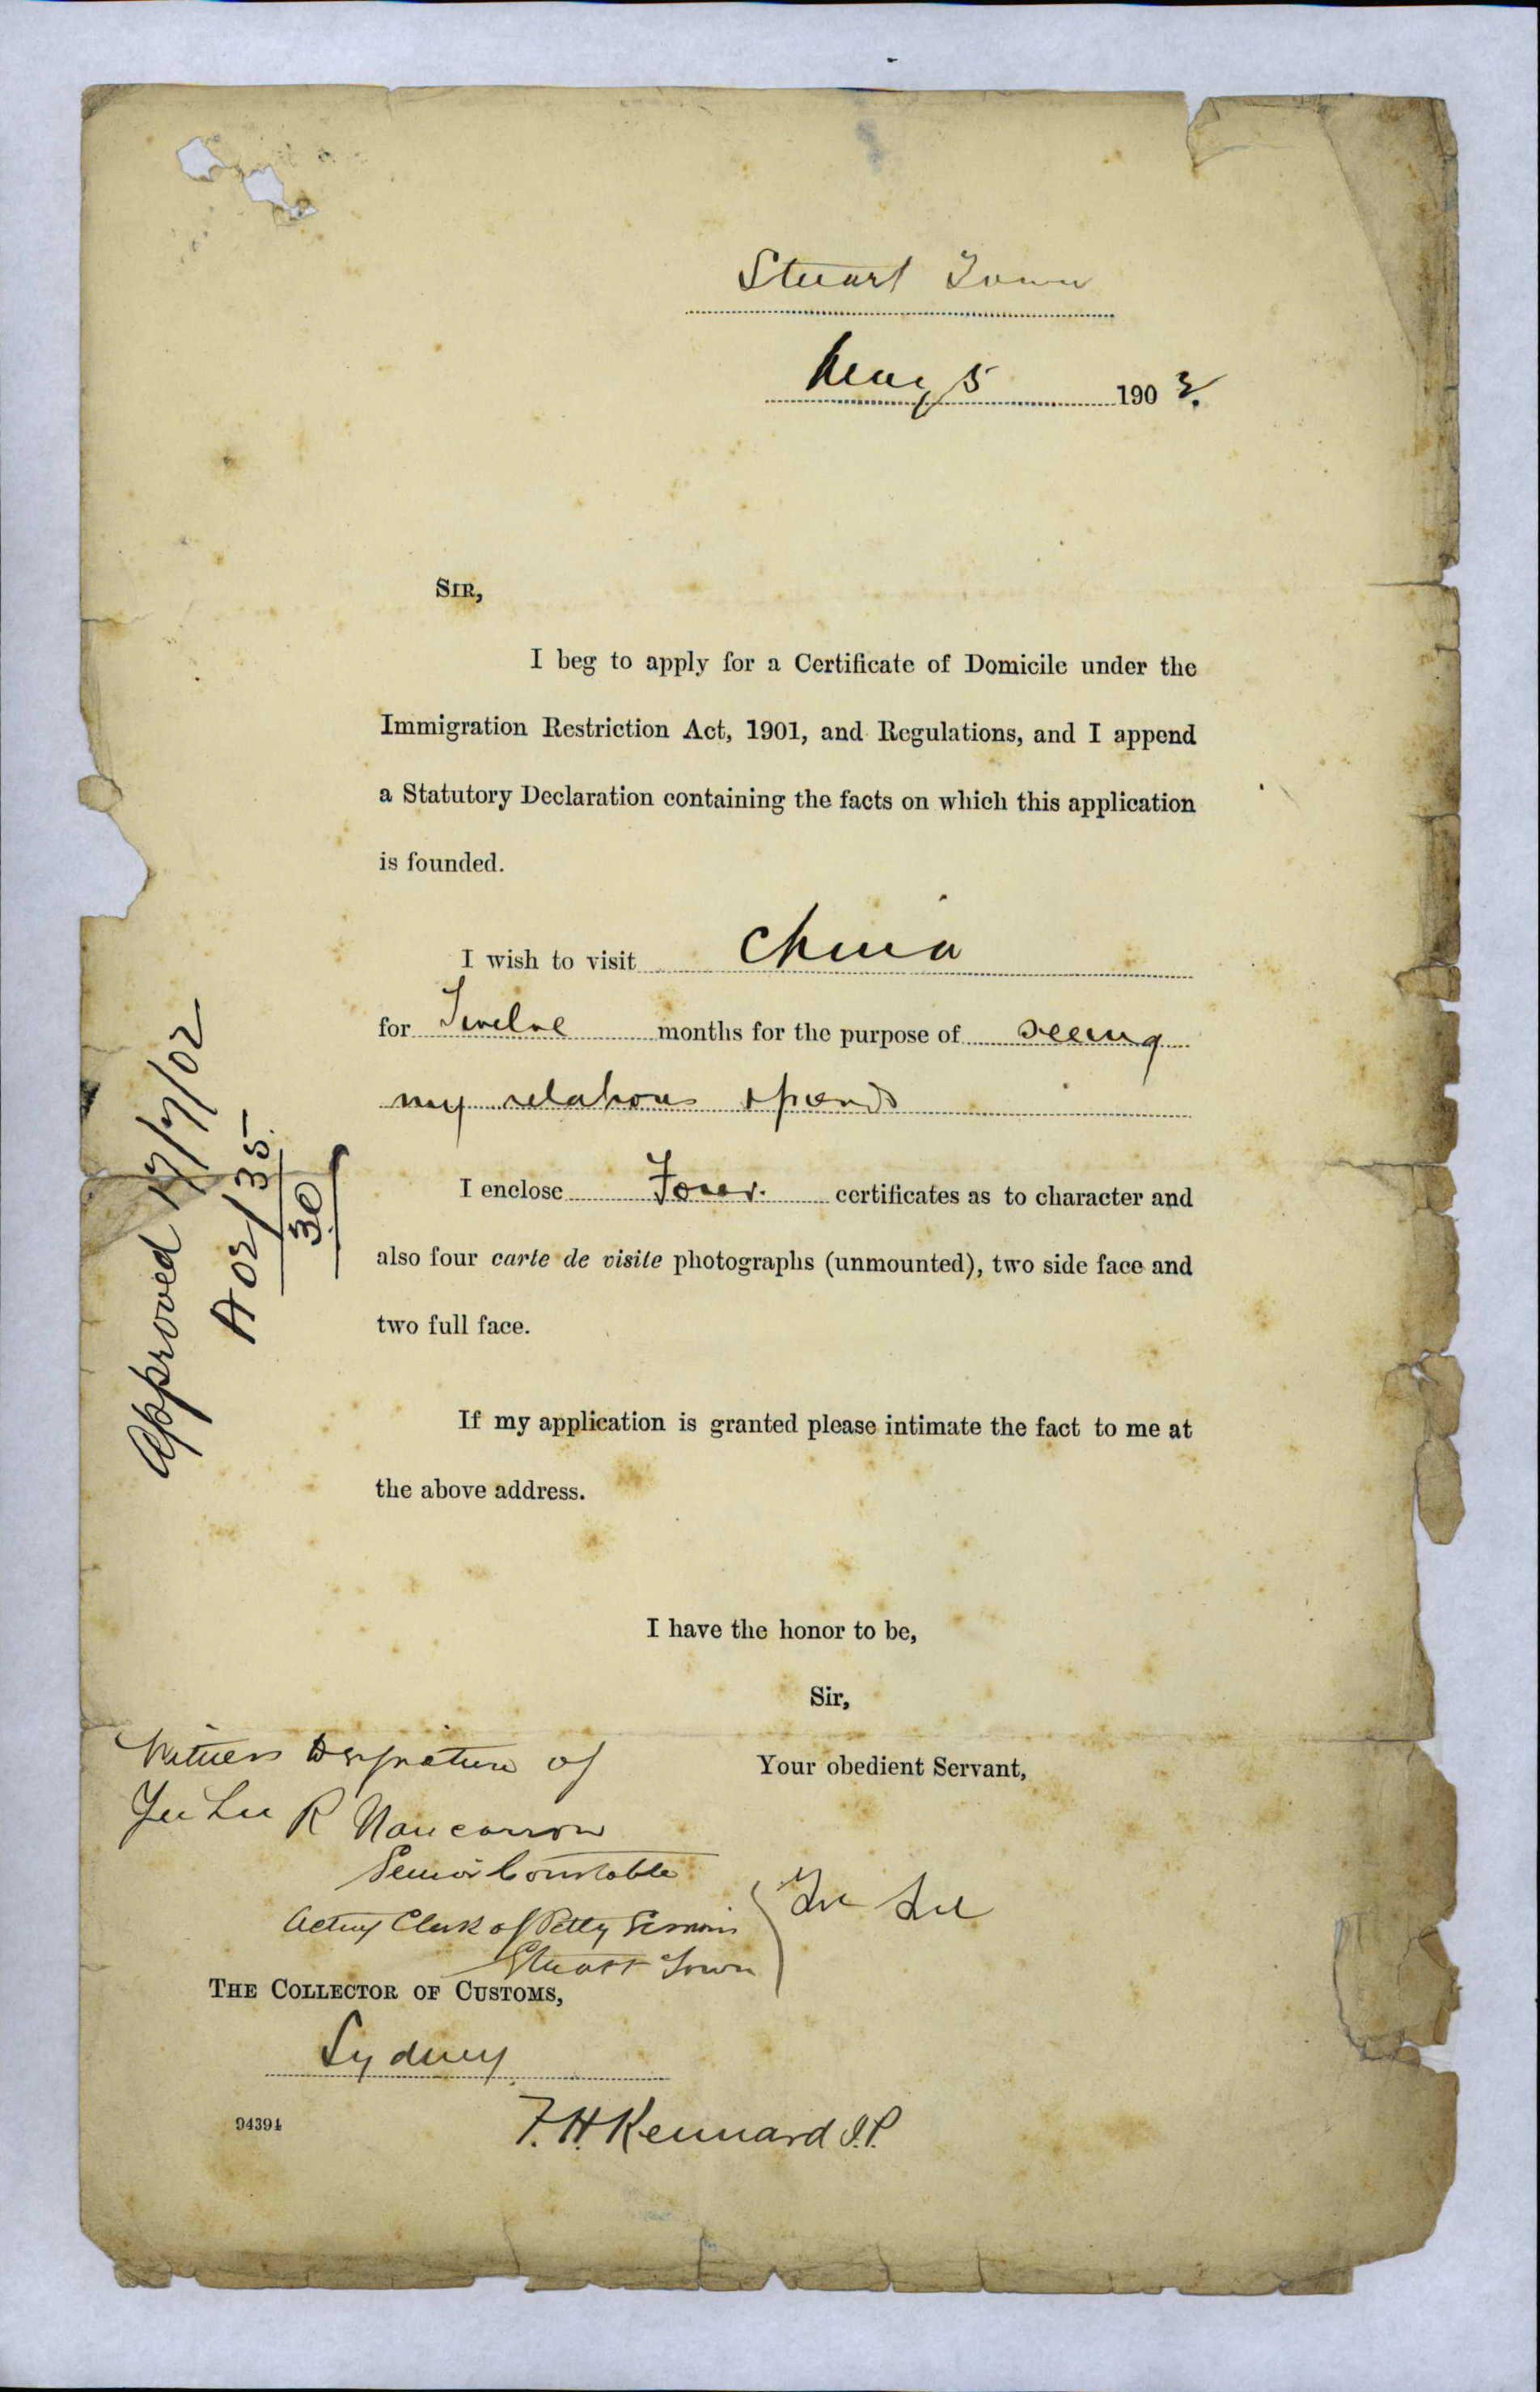 Stuart Town
May 5 1902.
SIR,
I beg to apply for a Certificate of Domicile under the
Immigration Restriction Act, 1901, and Regulations, and I append
a Statutory Declaration containing the facts on which this application
is founded.
I wish to visit China
for Twelve months for the purpose of seeing
my relations & friends
I enclose Four. certificates as to character and
also four carte de visite photographs (unmounted), two side face and
two full face.
If my application is granted please intimate the fact to me at
the above address.
Approved 17/7/02
A 02/35
30
I have the honor to be,
Sir,
Your obedient Servant,
Witness to Signature of
Yee Lee R Nancarrow
Senior Constable
Acting Clerk of Petty Sessions
Stuart Town
Yee Lee
THE COLLECTOR OF CUSTOMS,
Sydney
94394
F. H. Kennard J.P.